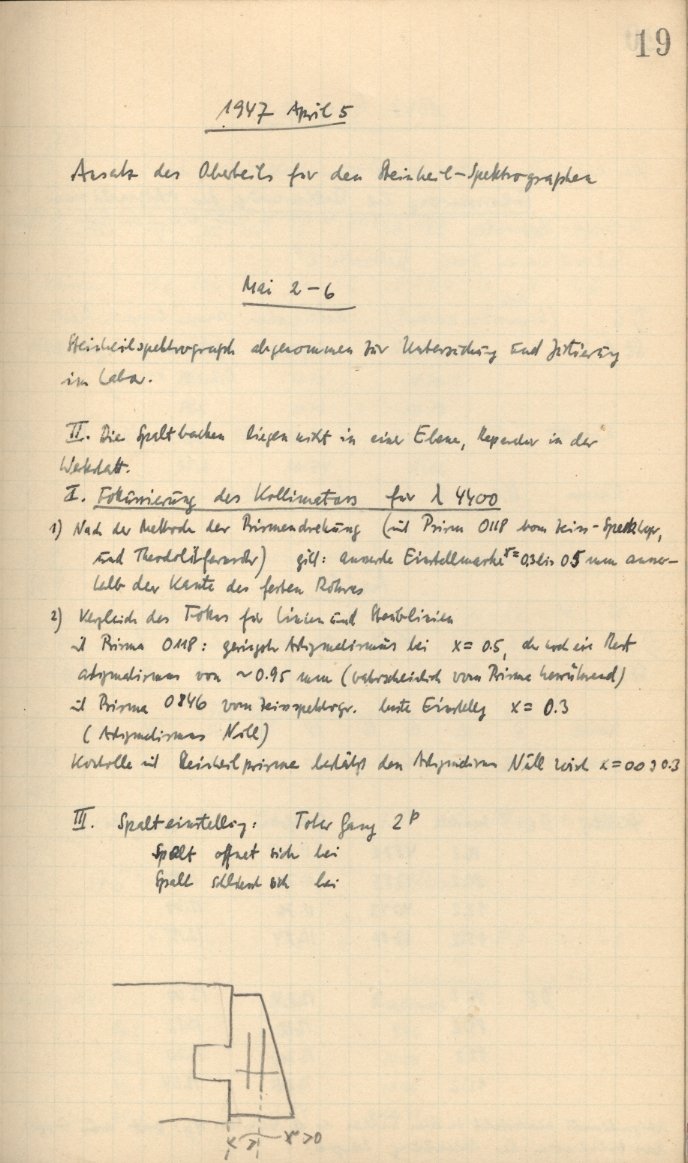 19
1947 April 5
Ansatz des Oberteils für den Steinheil-Spektrographen
Mai 2-6
Steinheilspektrograph abgenommen zur Untersuchung und Justierung
im Labor.
II. Die Spaltbacken liegen nicht in einer Ebene, Reparatur in der
Werkstatt.
I. Fokussierung des Kollimators für λ 4400
1) Nach der Methode der Prismendrehung (mit Prisma 0118 vom Zeiss-Spektrgr,
und Theodolitfernrohr) gibt: äusserste Einstellmarke x = 0.3 bis 0.5 mm ausser-
halb der Kante des festen Rohres
2) Vergleich des Fokus für Linien und Staublinien
mit Prisma 0118: geringster Astigmatismus bei x = 0.5, noch ein Rest
astigmatismus von ~0.95 mm (wahrscheinlich vom Prisma herrührend)
mit Prisma 0846 vom Zeissspektrogr. beste Einstellg x = 0.3
(Astigmatismus Null)
Kontrolle mit Steinheilprisma bestätigt den Astigmatismus Null x = 0.3
III. Spalteinstellung: Toter Gang 2p
Spalt öffnet sich bei
Spalt schliesst sich bei
x x>0